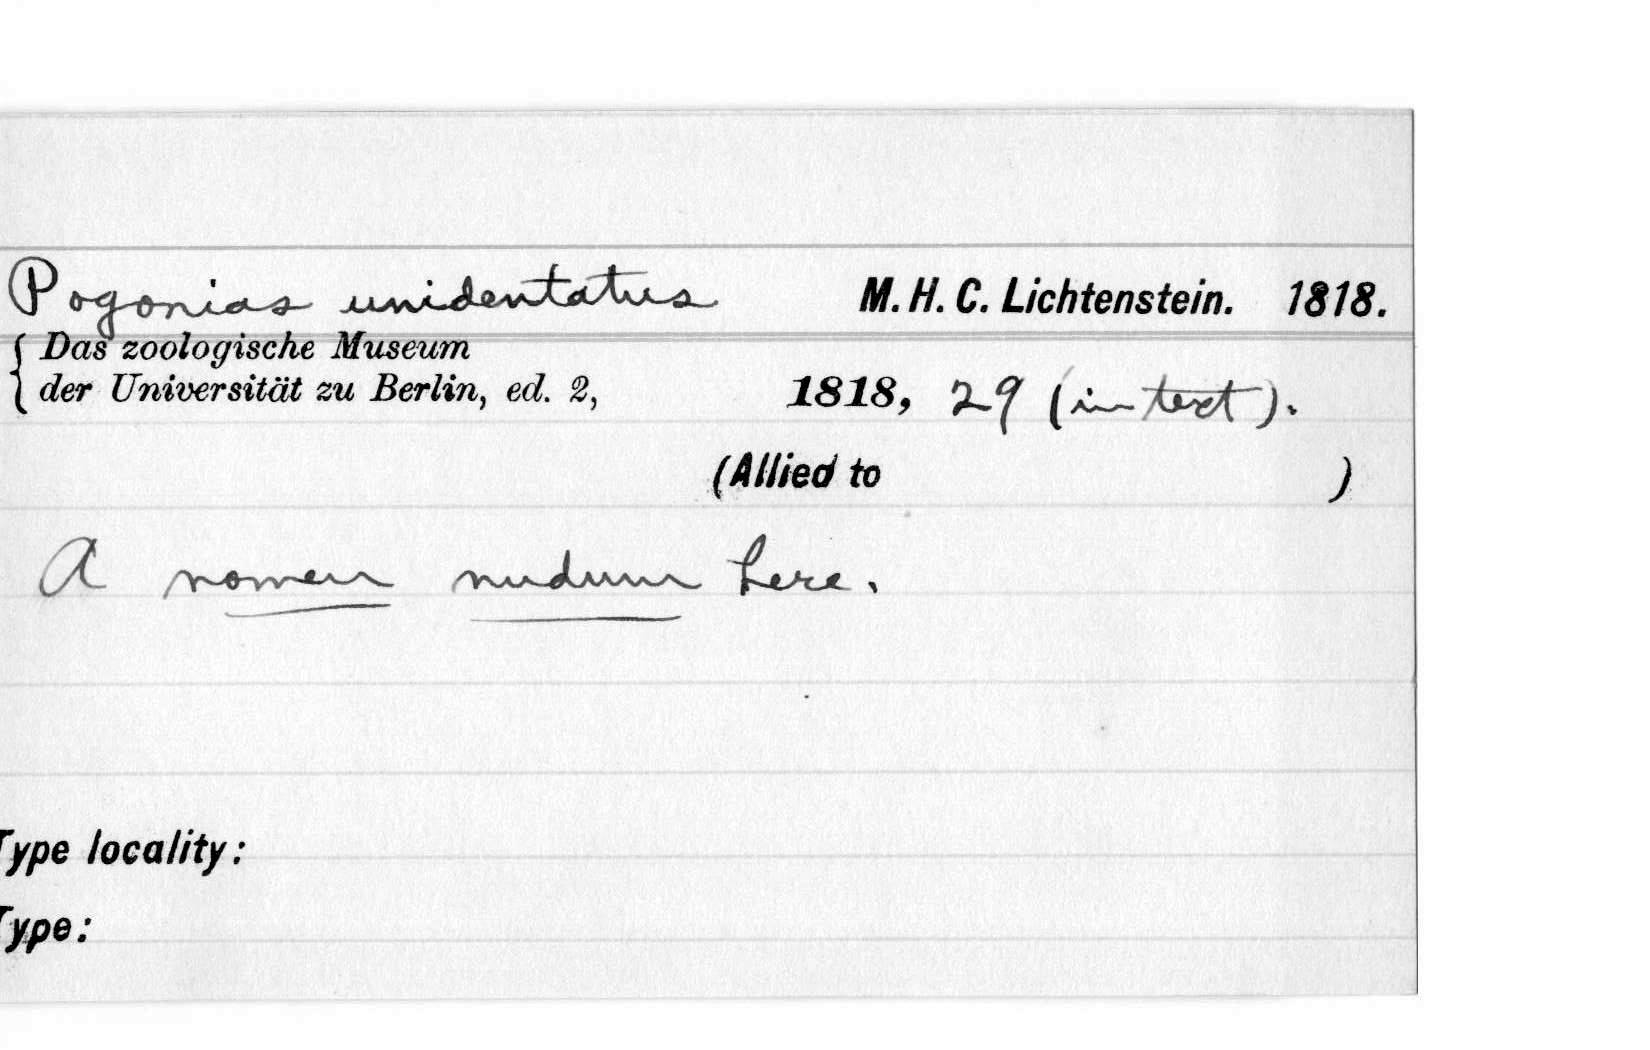 Pogonias unidentatus M. H. C. Lichtenstein. 1818.
Das zoologische Museum
der Universität zu Berlin, ed. 2, 1818, 29 (in text).
(Allied to )
A nomen nudum here.
Type locality:
Type: